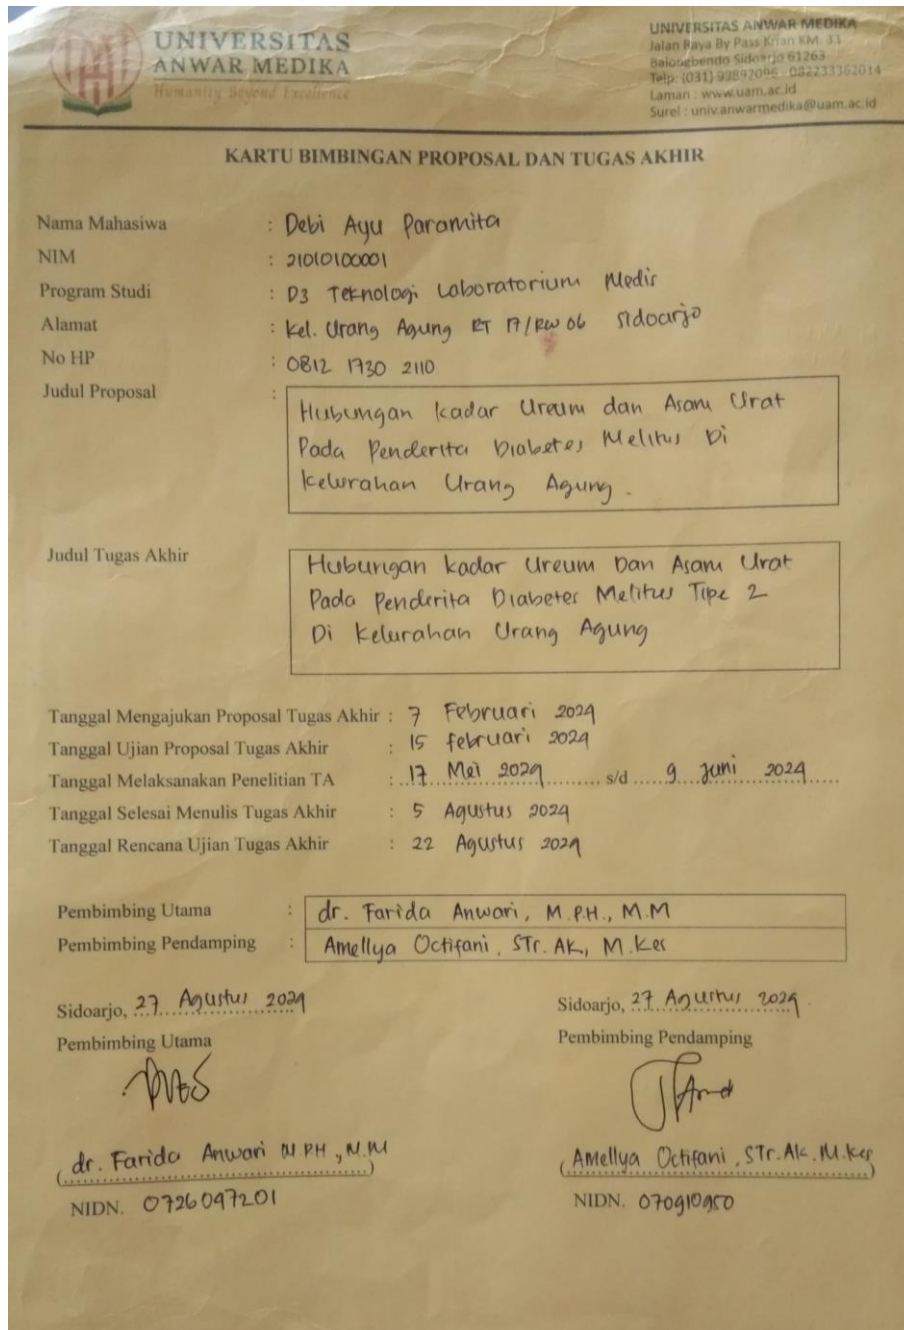 UNIVERSITAS
ANWAR MEDIKA
Humanity Beyond Excellence
UNIVERSITAS ANWAR MEDIKA
Jalan Raya By Pass Krian KM. 33
Balongbendo Sidoarjo 61263
Telp. (031) 99892096 - 082233362014
Laman : www.uam.ac.id
Surel : univ.anwarmedika@uam.ac.id
KARTU BIMBINGAN PROPOSAL DAN TUGAS AKHIR
Nama Mahasiwa : Debi Ayu Paramita
NIM : 21010100001
Program Studi : D3 Teknologi Laboratorium Medis
Alamat : Kel. Urang Agung RT 17/RW 06 Sidoarjo
No HP : 0812 1730 2110
Judul Proposal :
Hubungan kadar Ureum dan Asam Urat
Pada Penderita Diabetes Melitus Di
Kelurahan Urang Agung.
Judul Tugas Akhir
Hubungan kadar Ureum Dan Asam Urat
Pada Penderita Diabetes Melitus Tipe 2
Di Kelurahan Urang Agung
Tanggal Mengajukan Proposal Tugas Akhir : 7 Februari 2024
Tanggal Ujian Proposal Tugas Akhir : 15 februari 2024
Tanggal Melaksanakan Penelitian TA : 17 Mei 2024 s/d 9 Juni 2024
Tanggal Selesai Menulis Tugas Akhir : 5 Agustus 2024
Tanggal Rencana Ujian Tugas Akhir : 22 Agustus 2024
Pembimbing Utama : dr. Farida Anwari, M.P.H., M.M
Pembimbing Pendamping : Amellya Octifani, STr. AK, M.Kes
Sidoarjo, 27 Agustus 2024
Pembimbing Utama
dr. Farida Anwari M PH, M.M
NIDN. 0726097201
Sidoarjo, 27 Agustus 2024
Pembimbing Pendamping
(Amellya Octifani, STr. Ak. M.Kes)
NIDN.